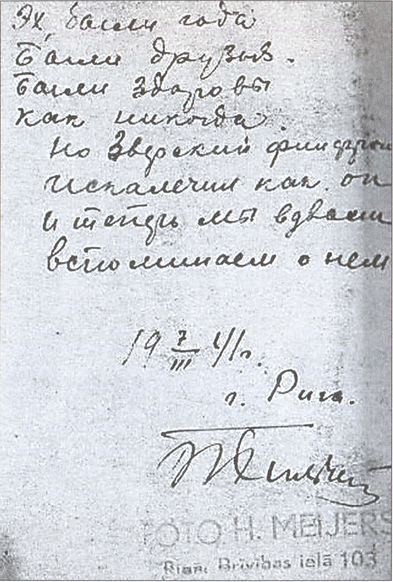 Эх были года
Были друзья.
Были здоровы
как никогда.
Но Зверский
искалечил как он
и теперь мы вдвоём
вспоминаем о нем
19 7/III 41 г.
г. Рига.
FOTO H. MEIJERS
Rīgā, Brīvības ielā 103